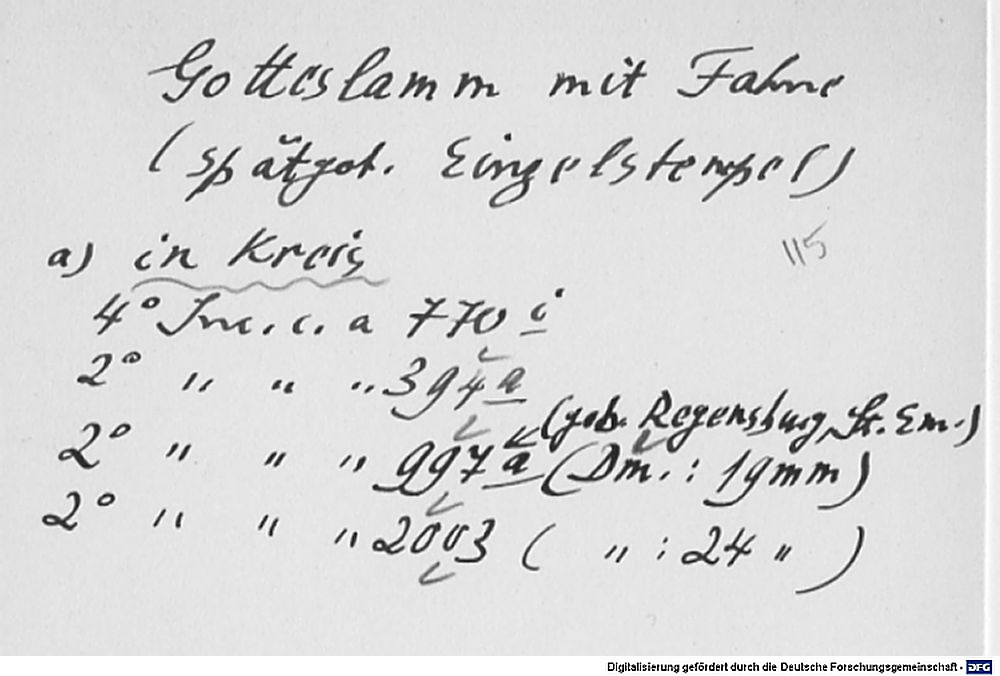 Gotteslamm mit Fahne
(spätgot. Einzelstempel)
115
a) in Kreis
4° Inc. c. a 770 i
2° " " " 394 a
(geb. Regensburg, St. Em.)
2° " " " 997 a (Dm. : 19mm)
2° " " " 2003 ( " : 24 " )
Digitalisierung gefördert durch die Deutsche Forschungsgemeinschaft - DFG